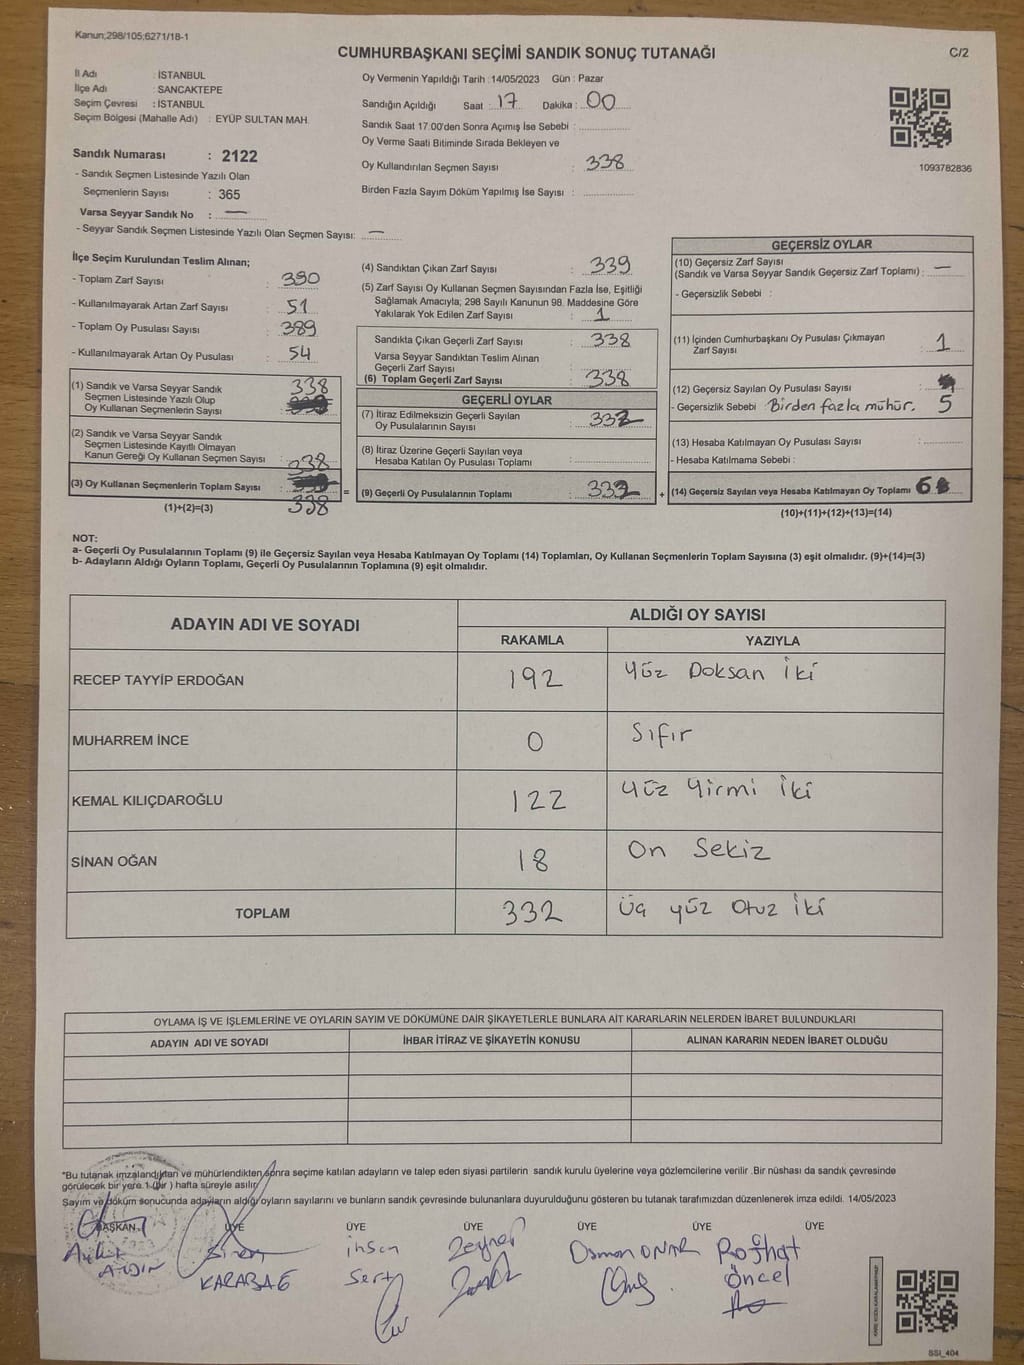 Kanun;298/105;6271/18-1
CUMHURBAŞKANI SEÇİMİ SANDIK SONUÇ TUTANAĞI
C/2
İl Adı : İSTANBUL
İlçe Adı : SANCAKTEPE
Seçim Çevresi : İSTANBUL
Seçim Bölgesi (Mahalle Adı) : EYÜP SULTAN MAH.
Sandık Numarası : 2122
- Sandık Seçmen Listesinde Yazılı Olan
Seçmenlerin Sayısı : 365
Varsa Seyyar Sandık No : —
- Seyyar Sandık Seçmen Listesinde Yazılı Olan Seçmen Sayısı: —
Oy Vermenin Yapıldığı Tarih : 14/05/2023 Gün : Pazar
Sandığın Açıldığı Saat : 17 Dakika : 00
Sandık Saat 17.00'den Sonra Açımış İse Sebebi :
Oy Verme Saati Bitiminde Sırada Bekleyen ve
Oy Kullandırılan Seçmen Sayısı : 338
Birden Fazla Sayım Döküm Yapılmış İse Sayısı :
1093782836
İlçe Seçim Kurulundan Teslim Alınan;
- Toplam Zarf Sayısı : 390
- Kullanılmayarak Artan Zarf Sayısı : 51
- Toplam Oy Pusulası Sayısı : 389
- Kullanılmayarak Artan Oy Pusulası : 54
(1) Sandık ve Varsa Seyyar Sandık
Seçmen Listesinde Yazılı Olup
Oy Kullanan Seçmenlerin Sayısı : 338
(2) Sandık ve Varsa Seyyar Sandık
Seçmen Listesinde Kayıtlı Olmayan
Kanun Gereği Oy Kullanan Seçmen Sayısı :
338
(3) Oy Kullanan Seçmenlerin Toplam Sayısı :
(1)+(2)=(3) 338
(4) Sandıktan Çıkan Zarf Sayısı : 339
(5) Zarf Sayısı Oy Kullanan Seçmen Sayısından Fazla İse, Eşitliği
Sağlamak Amacıyla; 298 Sayılı Kanunun 98. Maddesine Göre
Yakılarak Yok Edilen Zarf Sayısı : 1
Sandıkta Çıkan Geçerli Zarf Sayısı : 338
Varsa Seyyar Sandıktan Teslim Alınan
Geçerli Zarf Sayısı :
(6) Toplam Geçerli Zarf Sayısı : 338
GEÇERLİ OYLAR
(7) İtiraz Edilmeksizin Geçerli Sayılan
Oy Pusulalarının Sayısı : 332
(8) İtiraz Üzerine Geçerli Sayılan veya
Hesaba Katılan Oy Pusulası Toplamı :
= (9) Geçerli Oy Pusulalarının Toplamı : 332 +
GEÇERSİZ OYLAR
(10) Geçersiz Zarf Sayısı
(Sandık ve Varsa Seyyar Sandık Geçersiz Zarf Toplamı) : —
- Geçersizlik Sebebi :
(11) İçinden Cumhurbaşkanı Oy Pusulası Çıkmayan
Zarf Sayısı : 1
(12) Geçersiz Sayılan Oy Pusulası Sayısı :
- Geçersizlik Sebebi : Birden fazla mühür. 5
(13) Hesaba Katılmayan Oy Pusulası Sayısı :
- Hesaba Katılmama Sebebi :
(14) Geçersiz Sayılan veya Hesaba Katılmayan Oy Toplamı 6
(10)+(11)+(12)+(13)=(14)
NOT:
a- Geçerli Oy Pusulalarının Toplamı (9) ile Geçersiz Sayılan veya Hesaba Katılmayan Oy Toplamı (14) Toplamları, Oy Kullanan Seçmenlerin Toplam Sayısına (3) eşit olmalıdır. (9)+(14)=(3)
b- Adayların Aldığı Oyların Toplamı, Geçerli Oy Pusulalarının Toplamına (9) eşit olmalıdır.
ADAYIN ADI VE SOYADI
ALDIĞI OY SAYISI
RAKAMLA YAZIYLA
RECEP TAYYİP ERDOĞAN 192 Yüz Doksan iki
MUHARREM İNCE 0 Sıfır
KEMAL KILIÇDAROĞLU 122 Yüz Yirmi iki
SİNAN OĞAN 18 On Sekiz
TOPLAM 332 Üç yüz Otuz iki
OYLAMA İŞ VE İŞLEMLERİNE VE OYLARIN SAYIM VE DÖKÜMÜNE DAİR ŞİKAYETLERLE BUNLARA AİT KARARLARIN NELERDEN İBARET BULUNDUKLARI
ADAYIN ADI VE SOYADI İHBAR İTİRAZ VE ŞİKAYETİN KONUSU ALINAN KARARIN NEDEN İBARET OLDUĞU
*Bu tutanak imzalandıktan ve mühürlendikten sonra seçime katılan adayların ve talep eden siyasi partilerin sandık kurulu üyelerine veya gözlemcilerine verilir .Bir nüshası da sandık çevresinde
görülecek bir yere 1 (bir ) hafta süreyle asılır.
Sayım ve döküm sonucunda adayların aldığı oyların sayılarını ve bunların sandık çevresinde bulunanlara duyurulduğunu gösteren bu tutanak tarafımızdan düzenlenerek imza edildi. 14/05/2023
BAŞKAN ÜYE ÜYE ÜYE ÜYE ÜYE ÜYE
AYDIN Sinem KARABAĞ ihsan Sert Zeynep Osman ONAR Rojhat Öncel
SSI_404